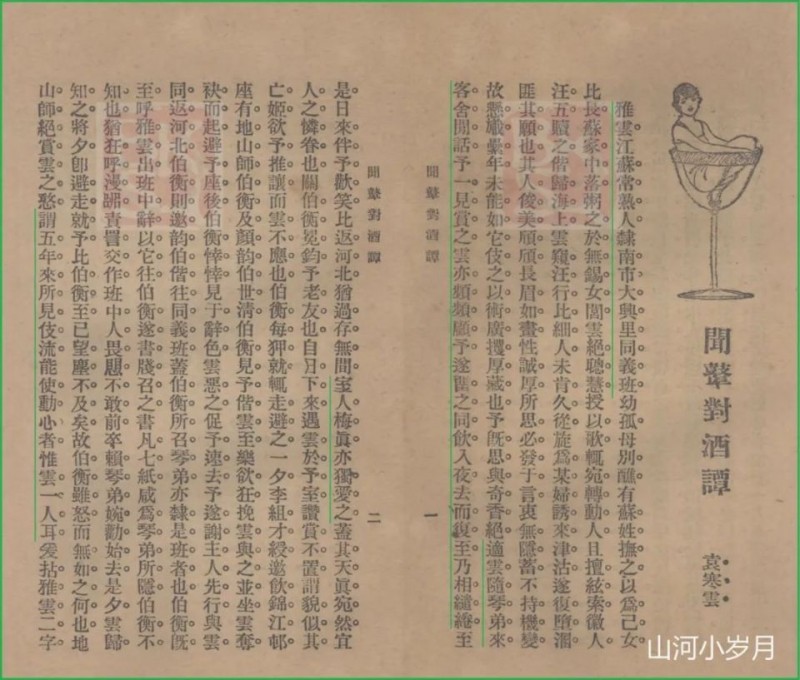 聞鼙對酒譚
袁寒雲
雅雲江蘇常熟人隸南市大興里同義班幼孤母別醮有蘇姓撫之以為己女
比長蘇家中落粥之於無錫女閭雲絕聰慧授以歌輒宛轉動人且擅絃索徽人
汪五贖之偕歸海上雲窺汪行比細人未肯久從旋為某婦誘來津沽遂復墮溷
匪其願也其人俊美頎頎長眉如畫性誠厚所思必發于言衷無隱蓄不持機變
故懸幟曩年未能如它伎之以術廣攫厚藏也予旣思與奇香絕適雲隨琴弟來
客舍閒話予一見賞之雲亦頻頻顧予遂閡之同飲入夜去而復至乃相繾綣至
聞鼙對酒譚
一
聞鼙對酒譚
二
是日來伴予歡笑比返河北猶過存無間室人梅眞亦獨愛之蓋其天眞宛然宜
人之憐眷也關伯衡冕鈞予老友也自日下來遇雲於予室讚賞不置謂貌似其
亡姬欲予推讓而雲不應也伯衡每狎就輒走避之一夕李組才綬邀飲錦江邨
座有地山師伯衡及顏韵伯世淸伯衡見予偕雲至樂欲狂挽雲與之並坐雲奪
袂而起避予座後伯衡悻悻見于辭色雲惡之促予速去予遂謝主人先行與雲
同返河北伯衡則邀韵伯偕往同義班蓋伯衡所召琴弟亦隸是班者也伯衡旣
至呼雅雲出班中辭以它往伯衡遂書牋召之書凡七紙咸為琴弟所隱伯衡不
知也猶狂呼漫罵責詈交作班中人畏懾不敢前卒賴琴弟婉勸始去是夕雲歸
知之將夕卽避走就予比伯衡至已望塵不及矣故伯衡雖怒而無如之何也地
山師絕賞雲之憨謂五年來所見伎流能使動心者惟雲一人耳爰拈雅雲二字
山河小岁月